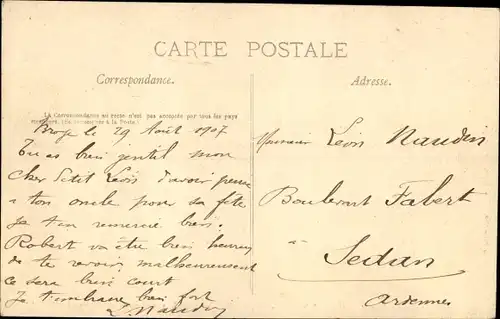 CARTE POSTALE
Correspondance.
Adresse.
La Correspondance au recto n'est pas acceptée par tous les pays
(Se renseigner à la Poste.)
le 29 Août 1907
Tu as bien gentil mon
cher petit Léon d'avoir pensé
à ton oncle pour sa fête
Je t'en remercie bien.
Robert va être bien heureux
de te revoir malheureusement
ce sera bien court
Je t'embrasse bien fort
L. Naudin
Monsieur Léon Naudin
Boulevard Fabert
à
Sedan
Ardennes